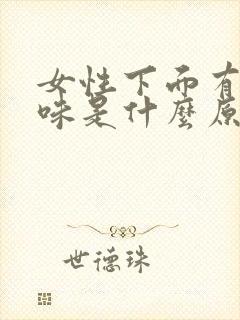 女性下面有
味是什麼原
世德珠